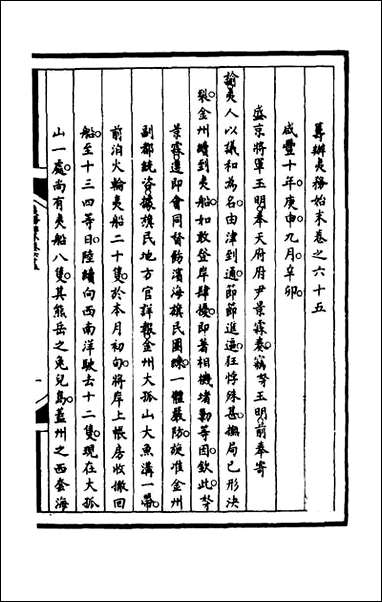 籌辦夷務始末卷之六十五
咸豐十年庚申九月辛卯
盛京將軍玉明奉天府府尹景霖奏竊努玉明前奉寄
諭夷人以議和為名由津到通節節進逼狂悖殊甚撫局已形決
裂金州續到夷船如敢登岸肆擾即著相機堵勦等因欽此努
景霖遵即會同督飭濱海旗民團練一體嚴防旋准金州
副都統咨據旗民地方官詳報金州大孤山大魚溝一帶
前泊火輪夷船二十隻於本月初旬將岸上帳房收撤回
船至十三四等日陸續向西南洋駛去十二隻現在大孤
山一處尚有夷船八隻其熊岳之兔兒島蓋州之西套海